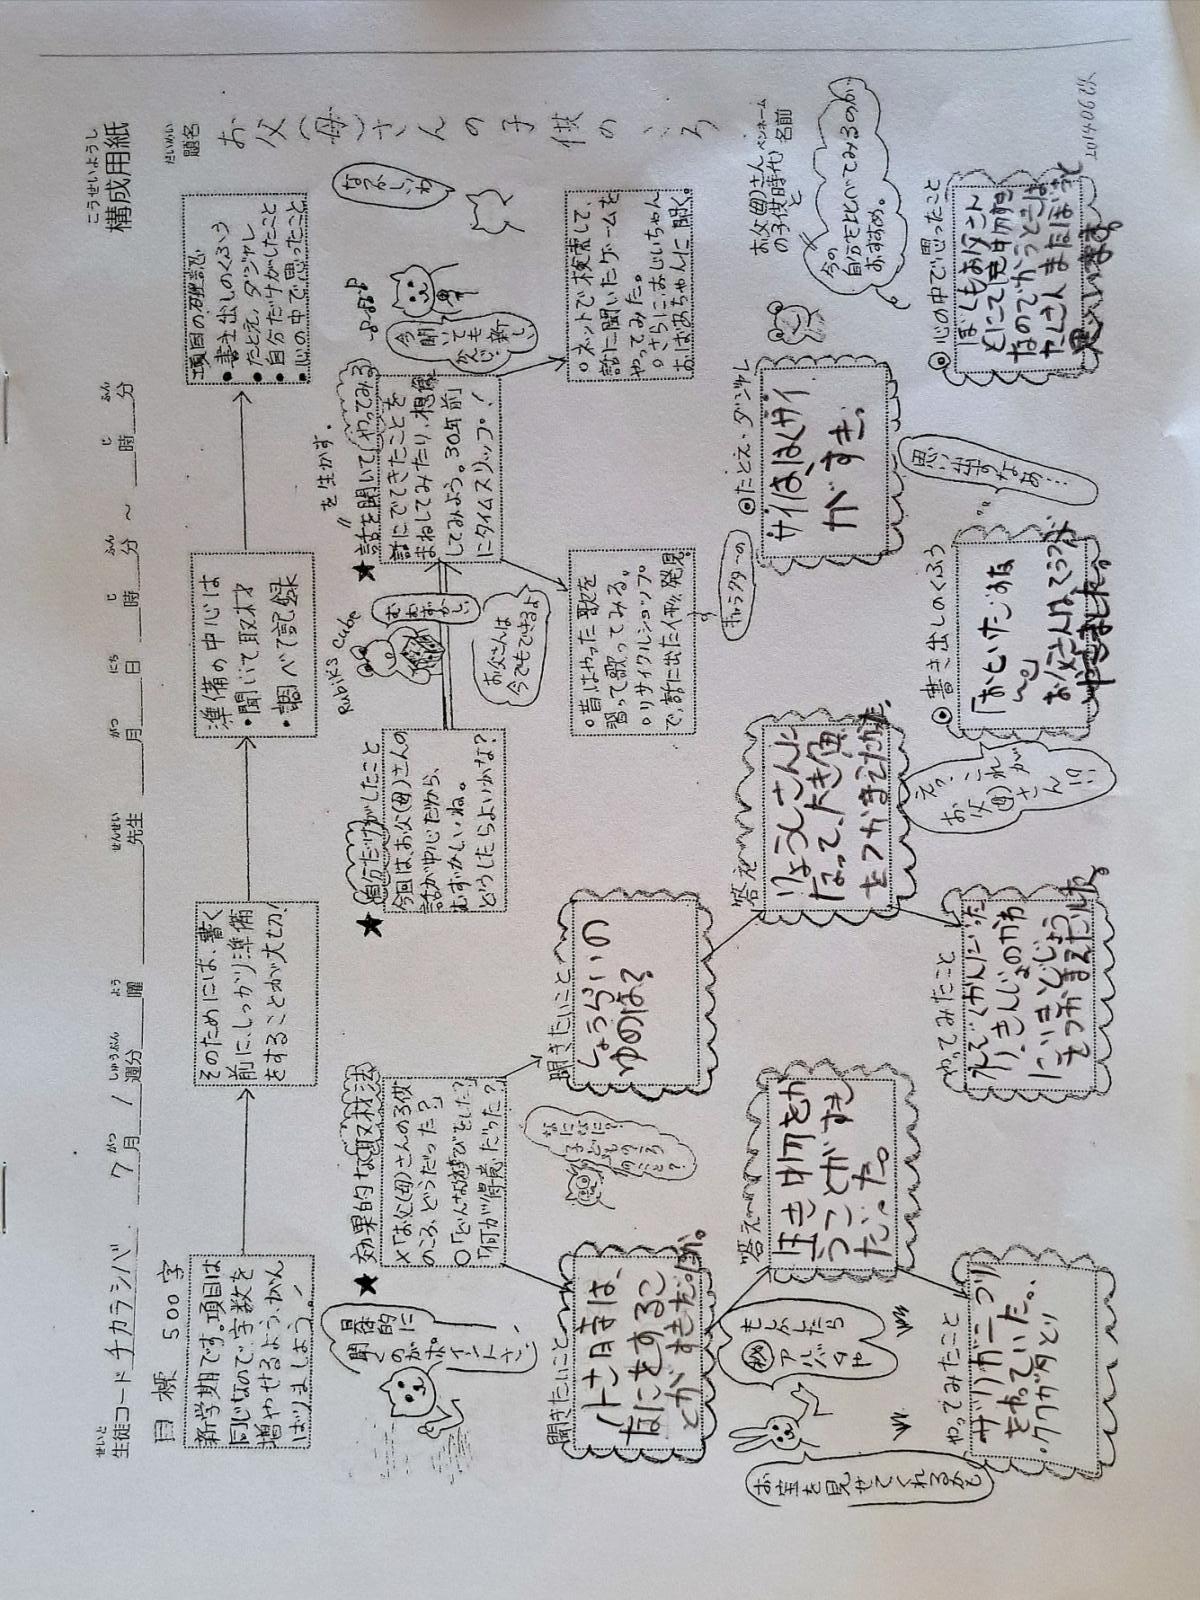 構成用紙
こうせいようし
生徒コード チカラシバ 7月1週分 曜 先生 月 日 時 分 ～ 時 分
せいと がつ しゅうぶん よう せんせい がつ にち じ ふん じ ふん
題名
だいめい
お父(母)さんの子供のころ
目標 500字
新学期です。項目は
同じなので字数を
増やせるよう、がん
ばりましょう!
そのためには、書く
前に、しっかり準備
をすることが大切!
準備の中心は
・聞いて取材
・調べて記録
項目の確認
・書き出しのくふう
・たとえ、ダジャレ
・自分だけがしたこと
・心の中で思ったこと
具体的に
聞くのが
ポイントさ!
★効果的な取材法
×「お父(母)さんの子供
のころ、どうだった?」
○「どんな遊びをした?」
「何が得意だった?」
★自分だけがしたこと
今回は、お父(母)さんの
話が中心だから、
むずかしいね。
どうしたらよいかな?
Rubik's Cube
むずかしい
お父さんは
今でもできるよ
を生かす。
★話を聞いて/やってみる
話にでてきたことを
まねしてみたり、想像
してみよう。30年前
にタイムスリップ!
今聞いても新しいかんじ
なつかしいわ
○昔はやった歌を
習って歌ってみる。
○リサイクルショップ
で、話に出た物発見。
キャラクターの
○ネットで検索して、
話に聞いたゲームを
やってみた。
○さらに、おじいちゃん
おばあちゃんに聞く。
聞きたいこと
小さい時は、
なにをすること
がすきだったか。
なになに?
子どものころのこと?
聞きたいこと
しょうらいの
ゆめは?
答え
生き物をか
うことがすき
だった。
答え
りょうしさんに
なって、大きい魚
をつかまえたかった。
㊙もしかしたら
アルバムや
お宝を見せてくれるかも
やってみたこと
ザリガニつり
をやっていた。
・クワガタとり
やってみたこと
水ぞくかんにいった
り、きんじょのかわ
にいきどじょう
をつかまえたりした。
えっ、これが
お父(母)さん!?
◎書き出しのくふう
「おといたじまな
〜」
お父さんはてつ
やきました。
思い出すなあ…
◎たとえ・ダジャレ
サイははくサイ
がすき。
お父(母)さん
の子供時代
と
ペンネーム
名前
今の
自分と比べてみるのが
おすすめ。
◎心の中で思ったこと
ぼくもお父さん
とにて生き物好き
なのでかうことは
たくさんまたぼうっと
います。
201406改